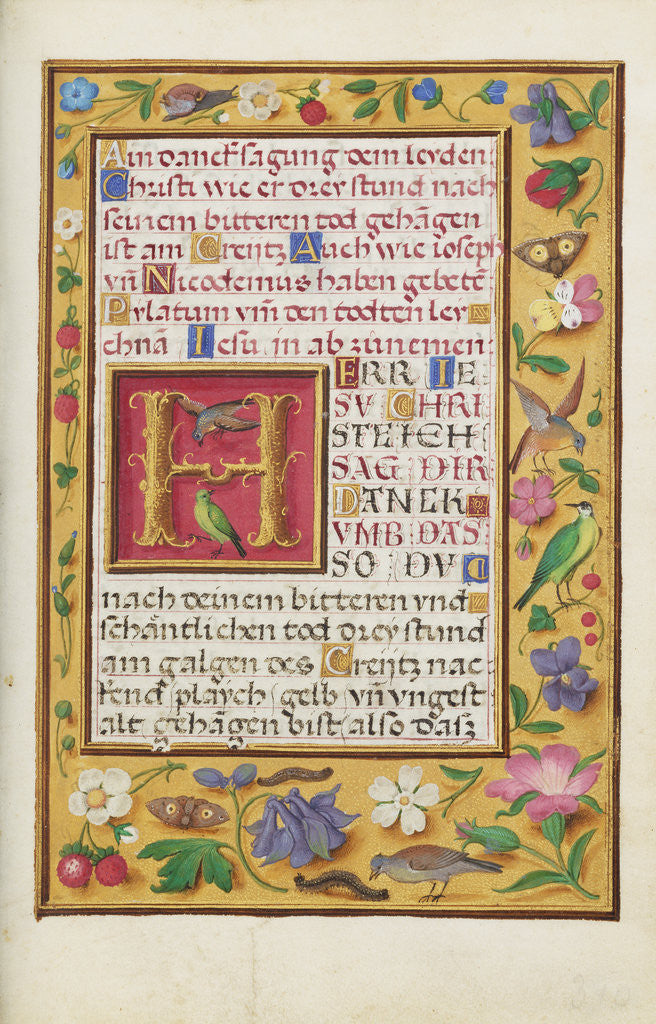 Ain danckſagung dem leyden
Chriſti wie er drey ſtund nach
ſeinem bitteren tod gehāgen
iſt am Creijtz Auch wie ioſeph
vn̄ Nicodemus haben gebetē
Pylatum vm̄ den todten ley
chnā Ieſu in ab zunemen
HERR IE
SV CHRI
STE ICH
SAG DIR
DANCK
VMB DAS
SO DV
nach deinem bitteren vnd
ſchāntlichen tod drey ſtund
am galgen des Creijtz nac
kend playch gelb vn̄ vngeſt
alt gehāgen biſt alſo daſz